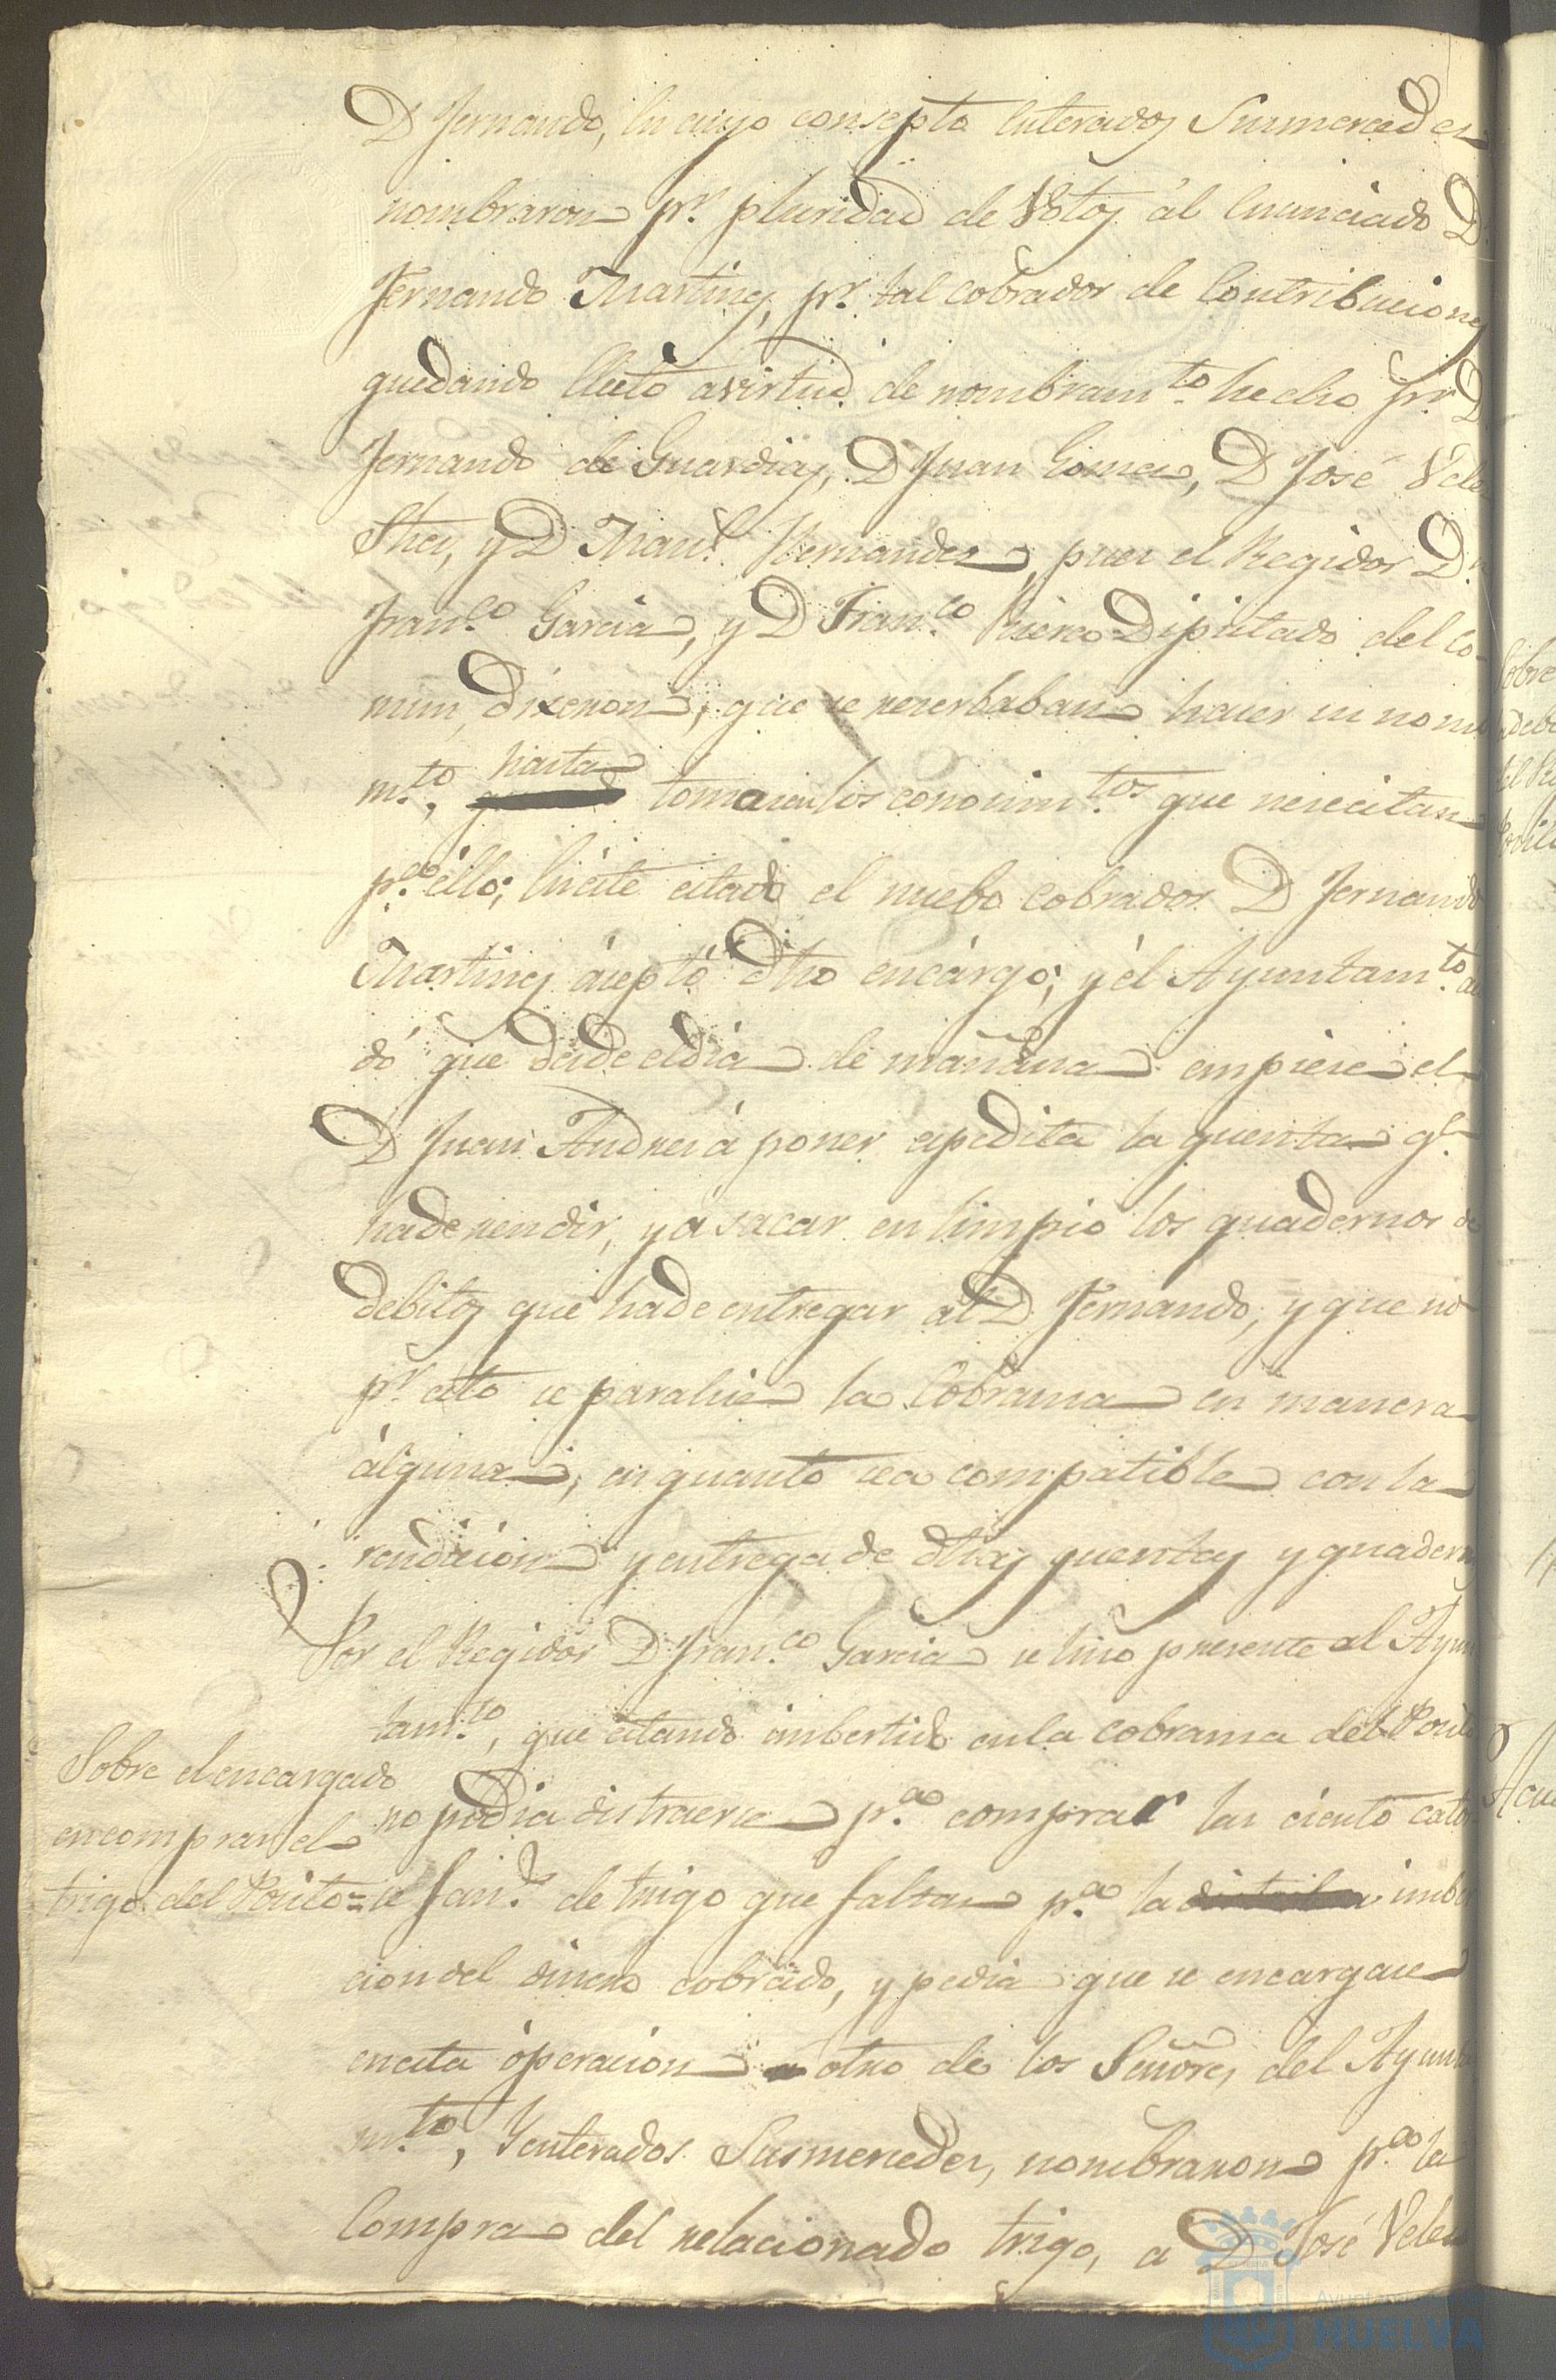 D Fernando, En cuyo consepto Enterados Susmercedes
nombraron pr. pluridad de Votos ál Enunciado D.
Fernando Martines, pr. tal cobrador de Contribuciones
quedando Electo avirtud de nombramto. hecho pr. D.
Fernando de Guardias, D Juan Gomes, D José Veles
Shez, y D Manl. Hernandes, pues el Regidor Dn.
Franco. Garcia, y D Franco. Diputado del co-
mun, dixeron, que se reserbaban hacer su nom
mto., hasta tomasen los conosimtos. que nesecitan
pa. éllo; Enéste estado el nuebo cobrador D Fernando
Martines áceptó dho encárgo; y él Ayuntamto.
dó que desde eldia de mañana empiese el
D Juan Andres á poner espedita la quenta qe.
hade rendir, y á sacar en limpio los quadernos de
debitos que hade entregar al D Fernando, y que no
pr. esto se paralise la Cobransa en manera
álguna, enquanto sea compatible con la
rendicion y entrega de dhas quentas y quadernos
Por el Regidor D Franco. Garcia se hiso presente al Ayun
tamto., que estando imbertido enla cobransa del Posito
no podia distraerse pa. comprar las ciento cator
se fans. de trigo que faltan pa. la imber
cion del dinero cobrado, y pedia que se encargase
enesta óperacion a otro de los Señores del Ayunta
mto., Y enterados Susmercedes, nombraron pa. la
Compra del relacionado trigo, a D José Veles
Sobre el encargado
en comprar el
trigo del Posito=
Ayuntamiento de
HUELVA